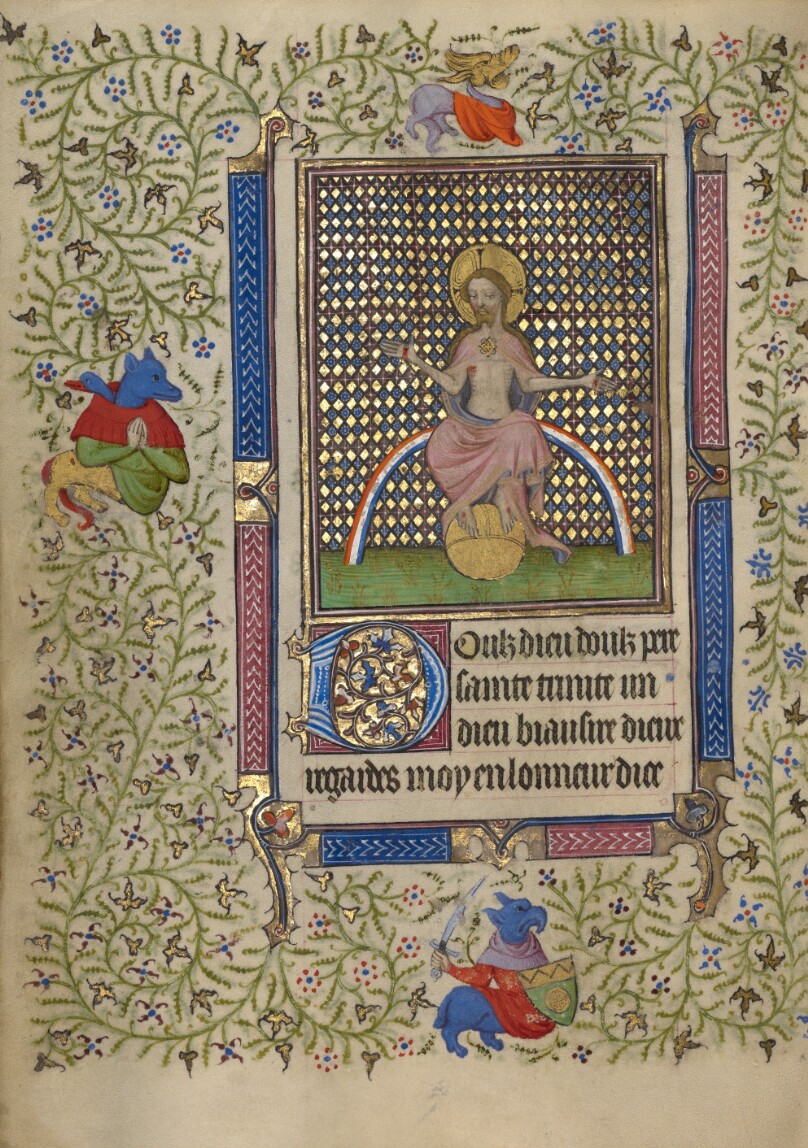 Doulz dieu doulz pere
sainte trinite un
dieu biausire dieux
regardes moy en lonneur dice